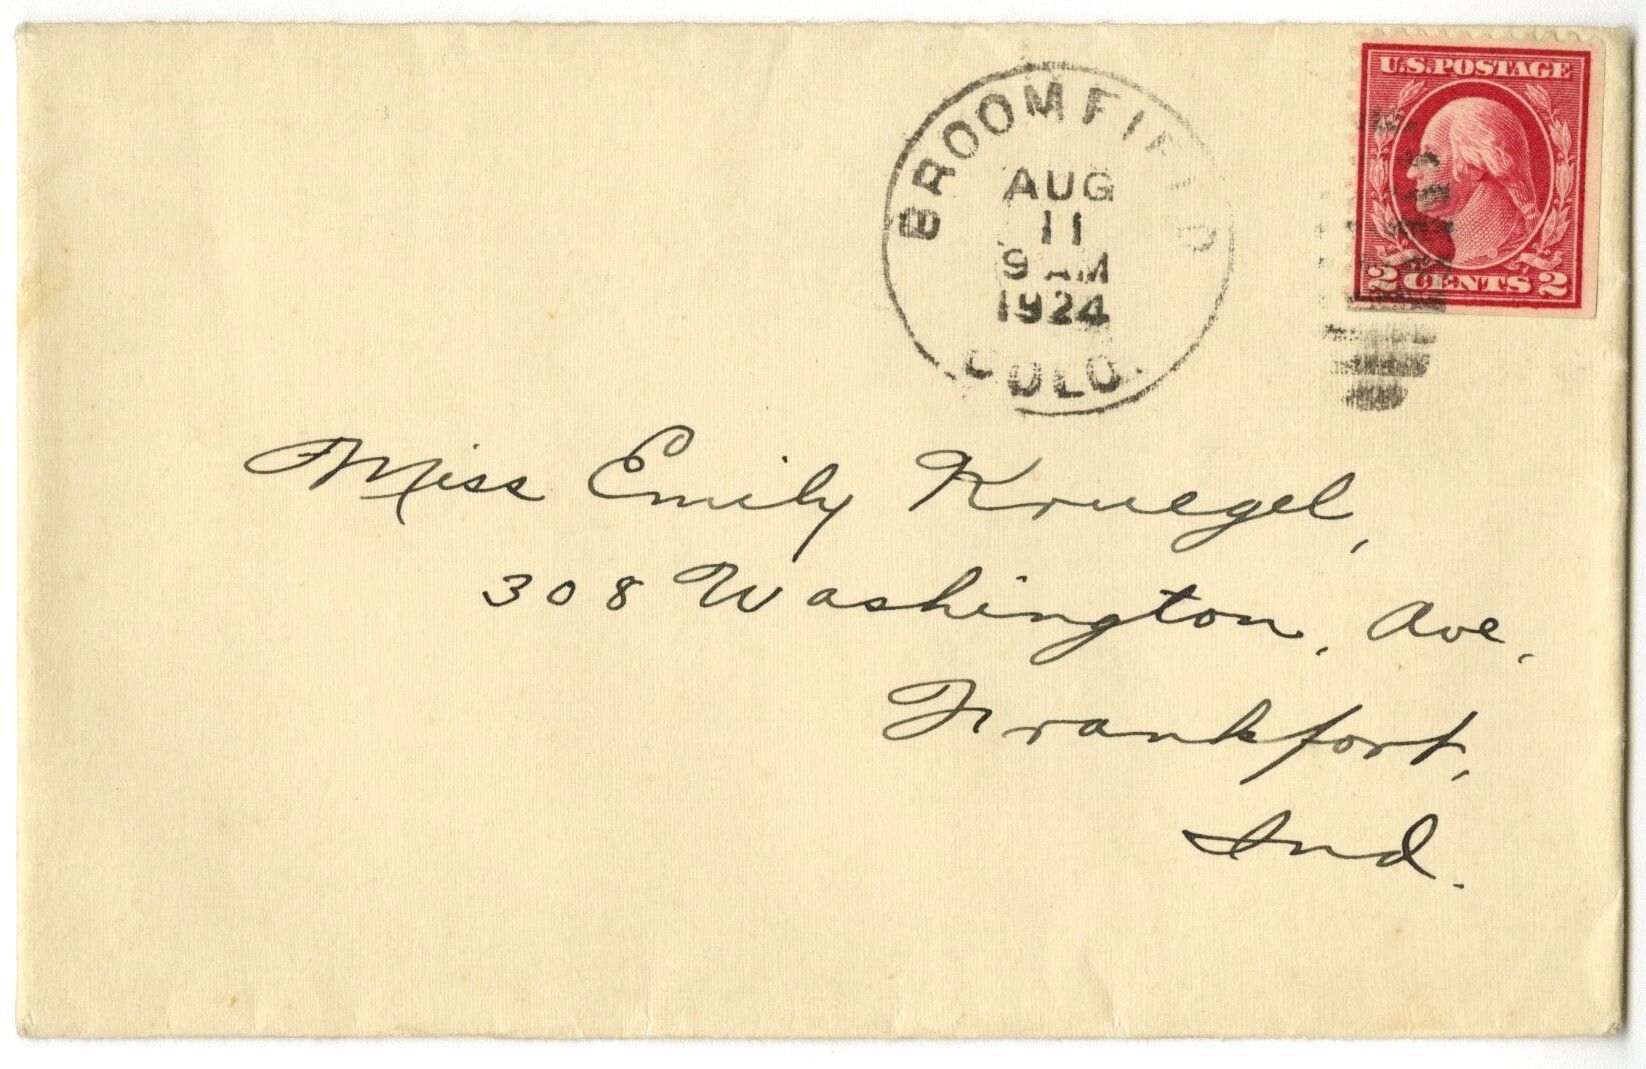 U.S. POSTAGE
BROOMFIELD
AUG
11
9 AM
1924
COLO.
2 CENTS 2
Miss Emily Kruegel,
308 Washington, Ave,
Frankfort,
Ind.